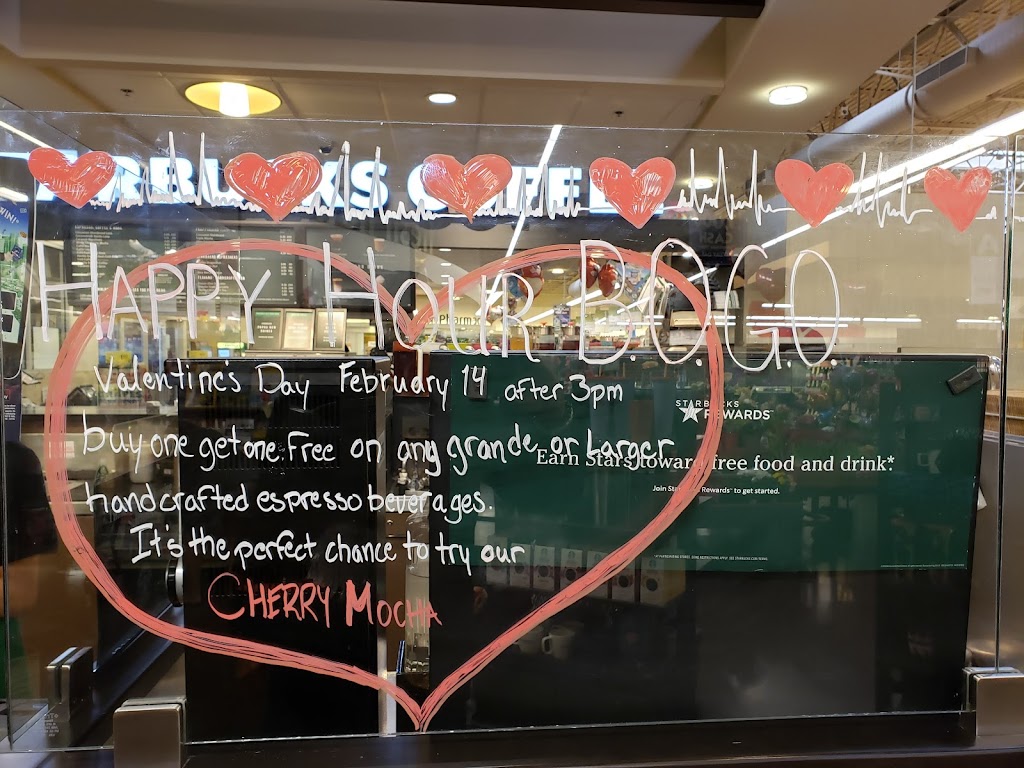 Happy Hour B.O.G.O.
Valentine's Day February 14 after 3pm
buy one get one Free on any grande or Larger
handcrafted espresso beverages.
It's the perfect chance to try our
CHERRY MOCHA
STARBUCKS
REWARDS™
Earn Stars toward free food and drink.*
Rewards™ to get started.
Pharm